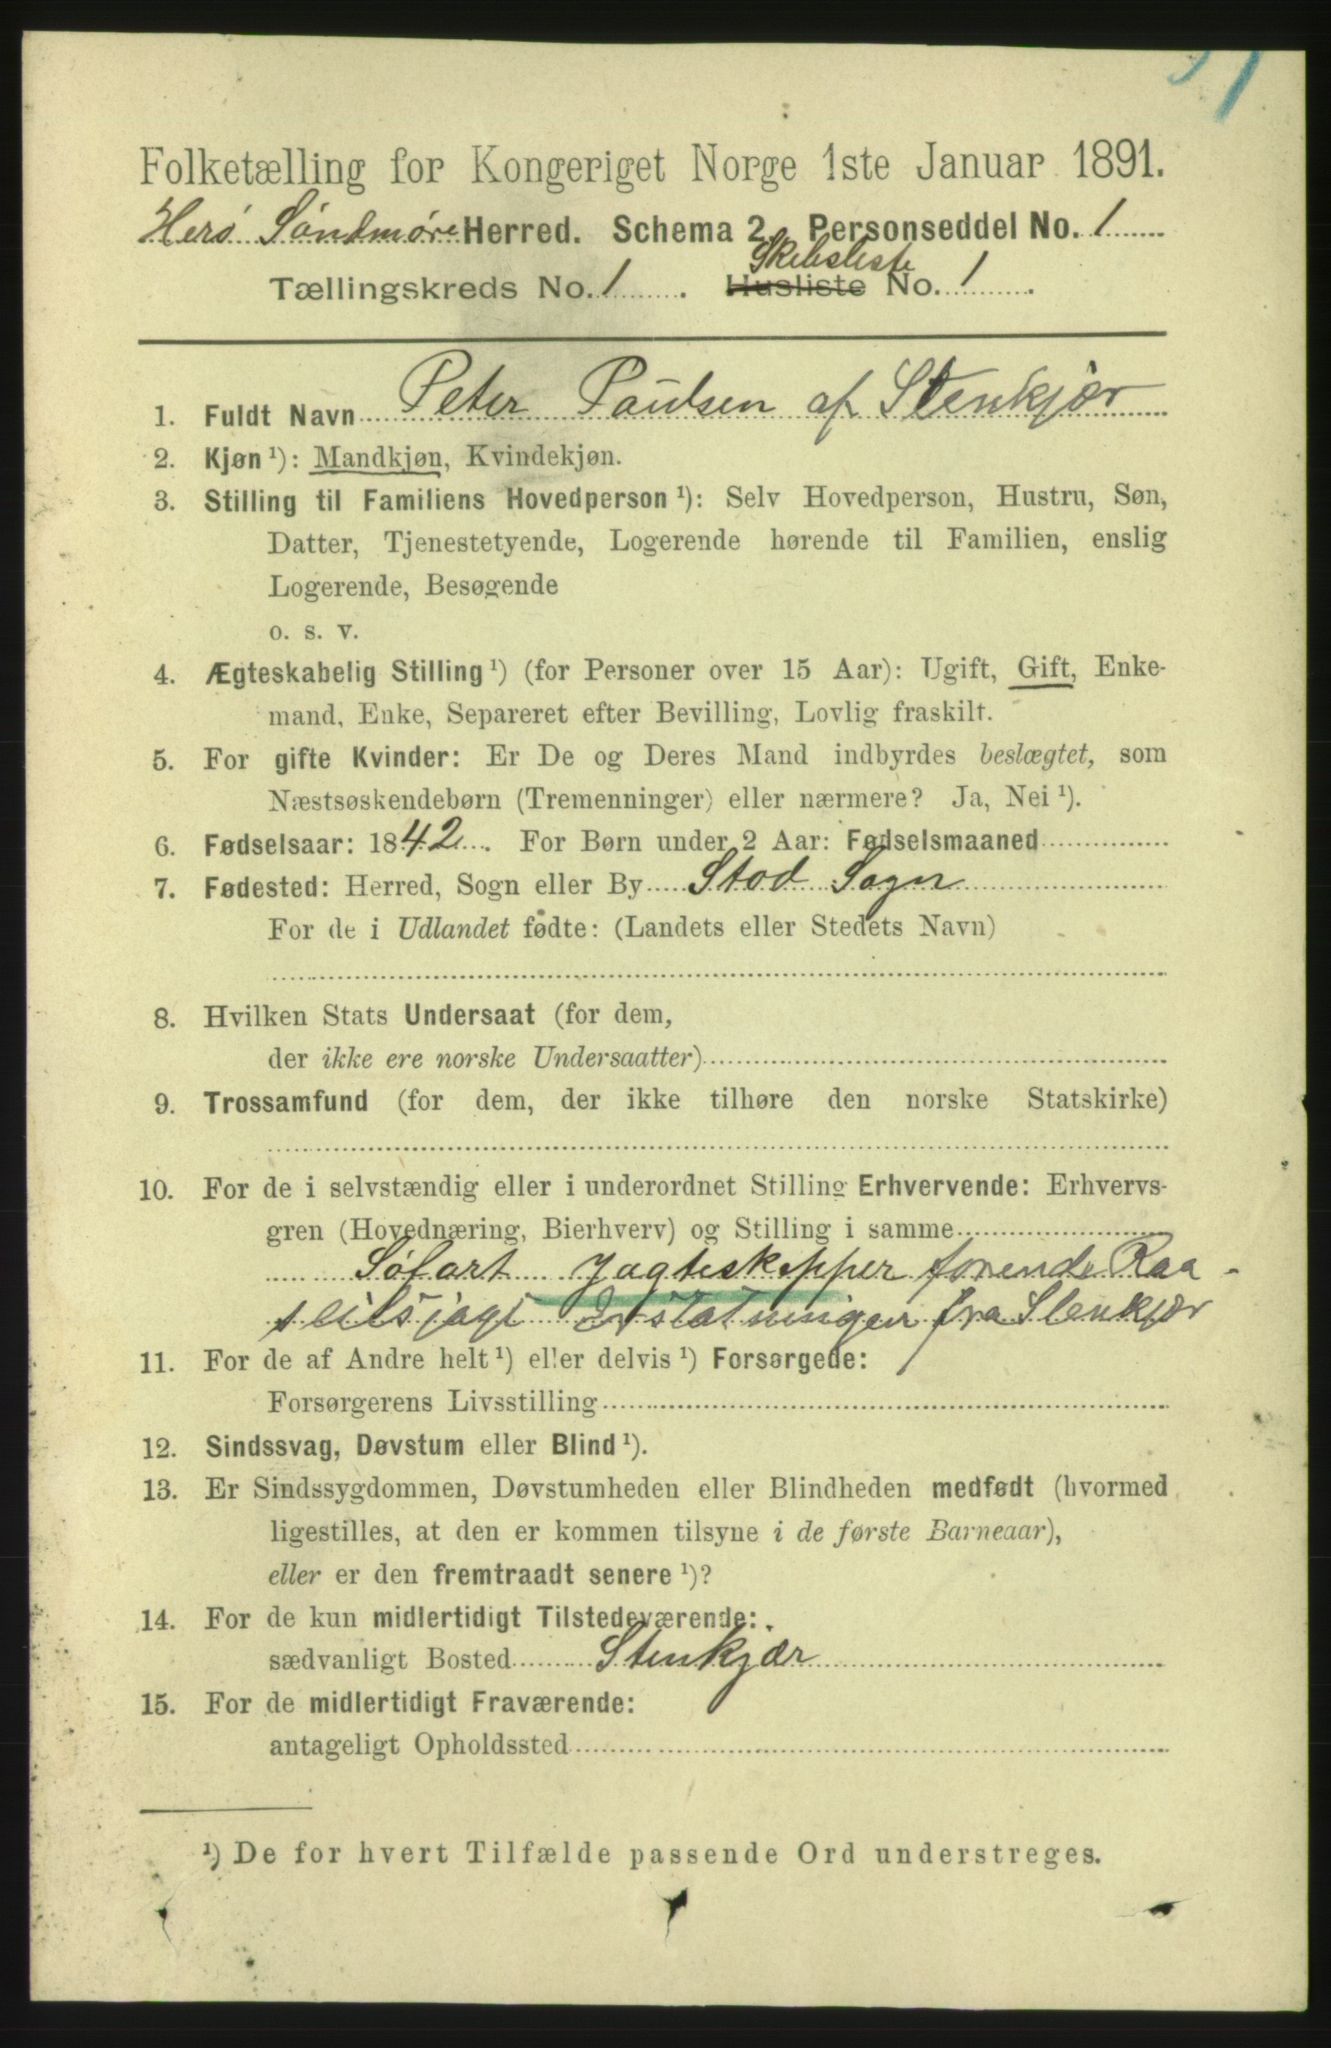 Folketælling for Kongeriget Norge 1ste Januar 1891.
Herø Søndmøre Herred. Schema 2. Personseddel No. 1
Skibsliste
Tællingskreds No. 1. Husliste No. 1.
1. Fuldt Navn Peter Paulsen af Stenkjær
2. Kjøn ¹): Mandkjøn, Kvindekjøn.
3. Stilling til Familiens Hovedperson ¹): Selv Hovedperson, Hustru, Søn,
Datter, Tjenestetyende, Logerende hørende til Familien, enslig
Logerende, Besøgende
o. s. v.
4. Ægteskabelig Stilling ¹) (for Personer over 15 Aar): Ugift, Gift, Enke-
mand, Enke, Separeret efter Bevilling, Lovlig fraskilt.
5. For gifte Kvinder: Er De og Deres Mand indbyrdes beslægtet, som
Næstsøskendebørn (Tremenninger) eller nærmere? Ja, Nei ¹).
6. Fødselsaar: 1842. For Børn under 2 Aar: Fødselsmaaned
7. Fødested: Herred, Sogn eller By Stod Sogn
For de i Udlandet fødte: (Landets eller Stedets Navn)
8. Hvilken Stats Undersaat (for dem,
der ikke ere norske Undersaatter)
9. Trossamfund (for dem, der ikke tilhøre den norske Statskirke)
10. For de i selvstændig eller i underordnet Stilling Erhvervende: Erhvervs-
gren (Hovednæring, Bierhverv) og Stilling i samme
Søfart Jagteskipper førende Raa-
seilsjagt fra Stenkjær
11. For de af Andre helt ¹) eller delvis ¹) Forsørgede:
Forsørgerens Livsstilling
12. Sindssvag, Døvstum eller Blind ¹).
13. Er Sindssygdommen, Døvstumheden eller Blindheden medfødt (hvormed
ligestilles, at den er kommen tilsyne i de første Barneaar),
eller er den fremtraadt senere ¹)?
14. For de kun midlertidigt Tilstedeværende:
sædvanligt Bosted Stenkjær
15. For de midlertidigt Fraværende:
antageligt Opholdssted
¹) De for hvert Tilfælde passende Ord understreges.